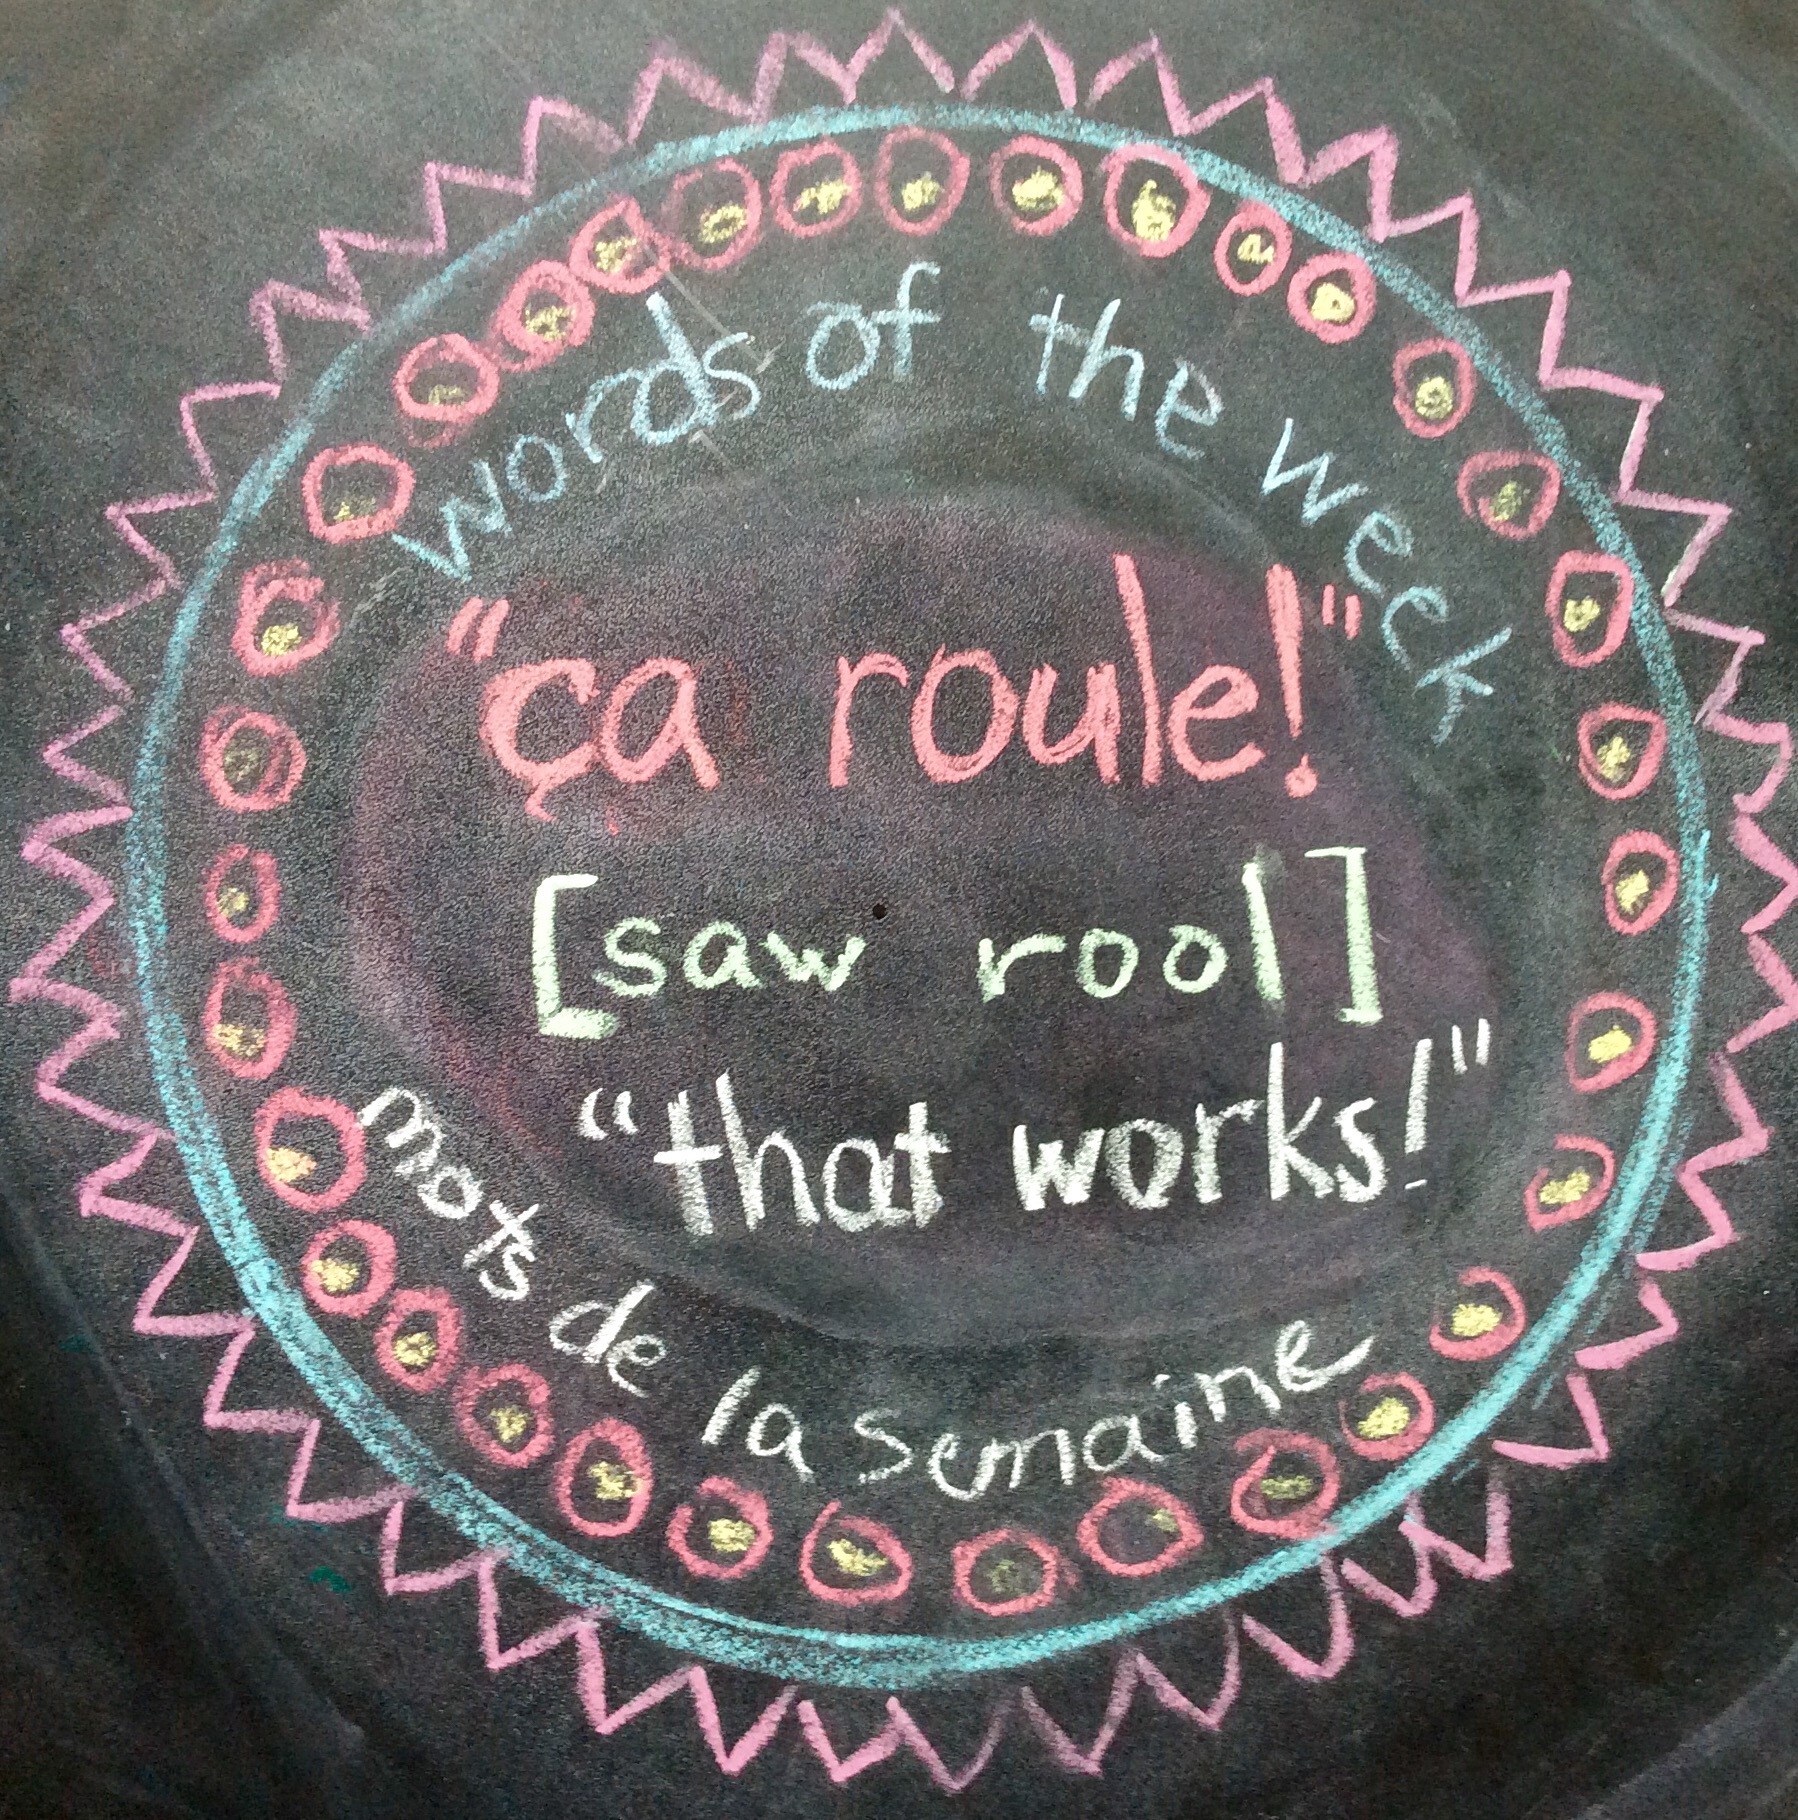 words of the week
"ça roule!"
[saw rool]
"that works!"
mots de la semaine